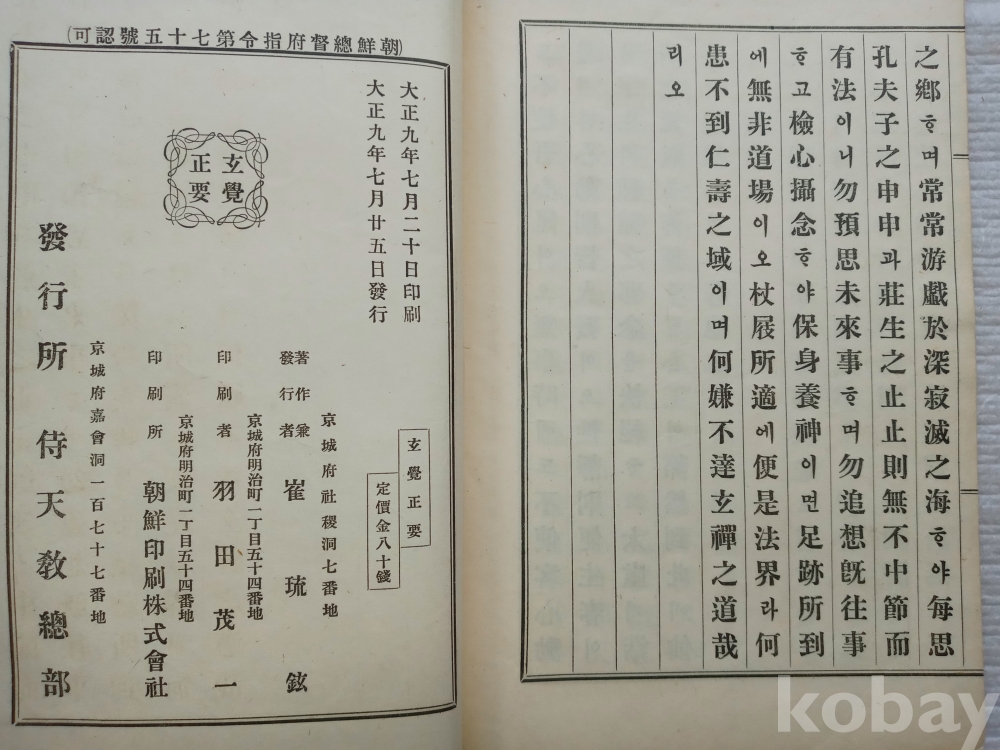 之鄕ᄒᆞ며常常游戱於深寂滅之海ᄒᆞ야每思
孔夫子之申申과莊生之止止則無不中節而
有法이니勿預思未來事ᄒᆞ며勿追想旣往事
ᄒᆞ고檢心攝念ᄒᆞ야保身養神이면足跡所到
에無非道場이오杖屐所適에便是法界라何
患不到仁壽之域이며何嫌不達玄禪之道哉
리오
(朝鮮總督府指令第七十五號認可)
大正九年七月二十日印刷
大正九年七月廿五日發行
玄覺
正要
玄覺正要
定價金八十錢
京城府社稷洞七番地
著作兼
發行者 崔琉鉉
京城府明治町一丁目五十四番地
印刷者 羽田茂一
京城府明治町一丁目五十四番地
印刷所 朝鮮印刷株式會社
京城府嘉會洞一百七十七番地
發行所 侍天敎總部
kobay